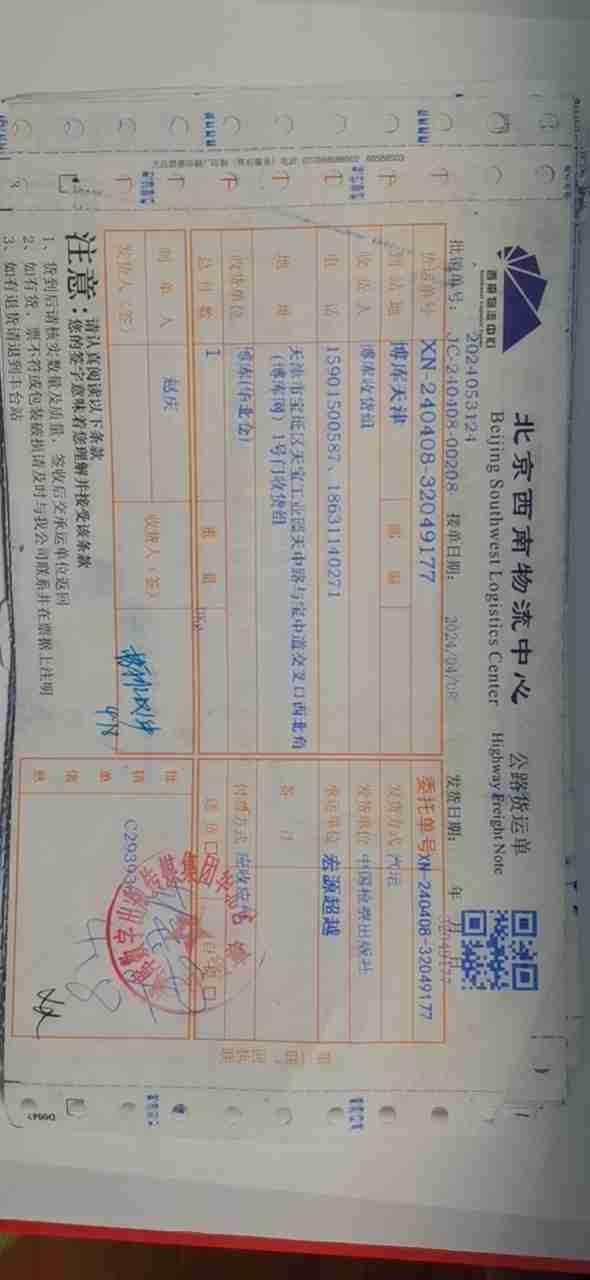 西南物流中心
北京西南物流中心 公路货运单
Beijing Southwest Logistics Center Highway Freight Note
2024053124
批销单号: JC-240408-00208 接单日期: 2024/04/08 发货日期: 年 月 日
货运单号 XN-240408-32049177 委托单号 XN-240408-32049177
32049177
到站地 博库天津 邮编 发货方式 汽运
收货人 博库收货组 发货单位 中国检察出版社
电话 15901500587、18631140271 承运单位 宏源超越
地址 天津市宝坻区天宝工业园天中路与宝中道交叉口西北角
(博库网) 1号门收货组 备注
收货单位 博库(华北仓) 付费方式 应收应付
总件数 1 重量 1Kg 送货□ 自提□
制单人 赵庆 收货人(签)
发货人(签)
批销单信息
C29393
4/8
4.8
第二联:回执联
注意:
请认真阅读以下条款
您的签字意味着您理解并接受该条款
1、货到后请核实数量及质量,签收后交承运单位返回
2、如有货、票不符或包装破损请及时与我公司联系并在票据上注明
3、如有退货请退到丰台站